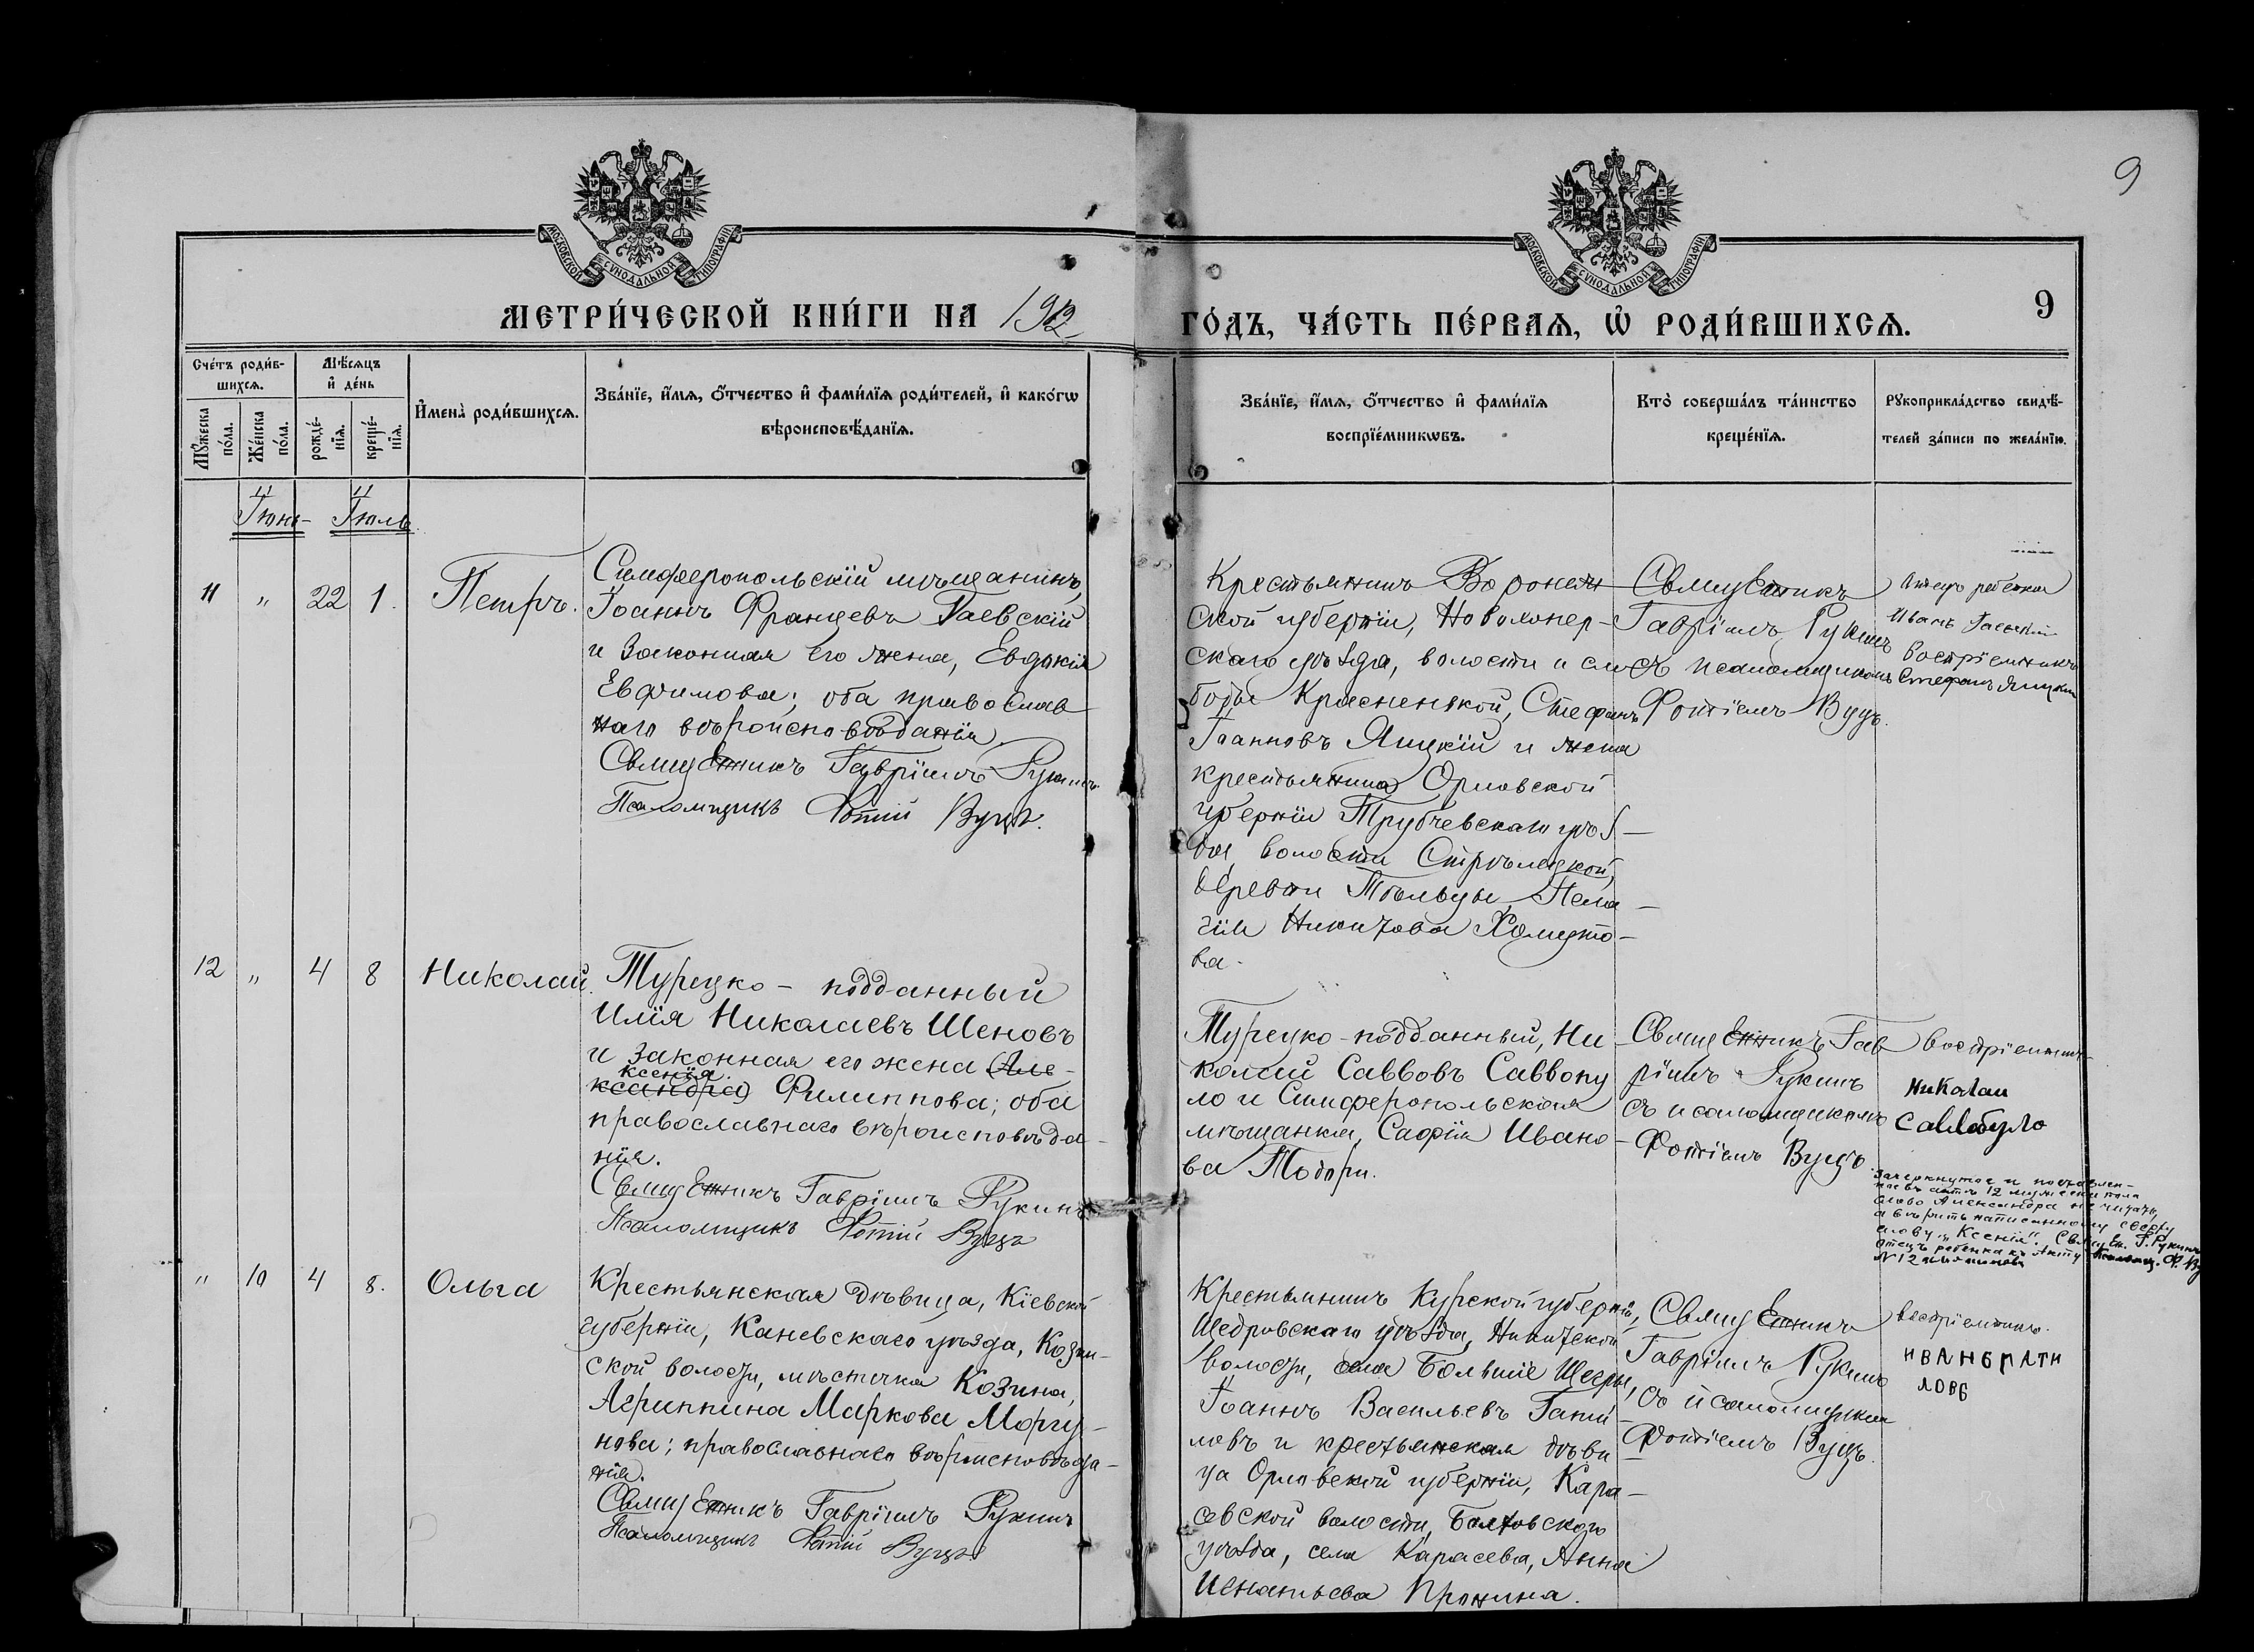 9
МОСКОВСКОЙ СѴНОДАЛЬНОЙ ТИПОГРАФІИ
МОСКОВСКОЙ СѴНОДАЛЬНОЙ ТИПОГРАФІИ
МЕТРИ́ЧЕСКОЙ КНИ́ГИ НА 1912
ГО́ДЪ, ЧА́СТЬ ПЕ́РВАѦ, Ѡ҆ РОДИ́ВШИХСѦ.
9
Сче́тъ роди́в-
шихсѧ.
Мꙋ́жеска
по́ла.
Же́нска
по́ла.
Мѣ́сѧцъ
и҆ де́нь
рожде́-
нїѧ.
креще́-
нїѧ.
И҆мена̀ роди́вшихсѧ.
Зва́нїе, и҆́мѧ, ѻ҆́тчество и҆ фами́лїѧ роди́телей, и҆ како́гѡ
вѣроисповѣ́данїѧ.
Зва́нїе, и҆́мѧ, ѻ҆́тчество и҆ фами́лїѧ
воспрїе́мникѡвъ.
Кто̀ соверша́лъ та́инство
креще́нїѧ.
Рꙋкоприкла́дство свидѣ́-
телей за́писи по жела́нїю.
Іюнь- Іюль.
11 " 22 1. Петръ.
Симферопольскій мѣщанинъ,
Іоаннъ Францевъ Гаевскій
и законная его жена, Евдокія
Евфимова; оба православ
наго вѣроисповѣданія.
Священникъ Гавріилъ Рукинъ.
Псаломщикъ Фотій Вуцъ.
Крестьянинъ Воронеж
ской губерніи, Новохопер-
скаго уѣзда, волости и сло
боды Красненькой, Стефанъ
Іоанновъ Яицкій и жена
крестьянина Орловской
губерніи Трубчевскаго уѣз-
да, волости Стрѣлецкой,
деревни Пела-
гія Никитова Хомуто-
ва.
Священникъ
Гавріилъ Рукинъ
съ псаломщикомъ
Фотіемъ Вуцъ.
Отецъ ребенка
Иванъ Гаевскій
Воспріемникъ
Стефанъ Яицкій
12 " 4 8 Николай.
Турецко-подданный
Илія Николаевъ Шеновъ
и законная его жена (Але-
Ксенія.
ксандра) Филиппова; оба
православнаго вѣроисповѣда-
нія.
Священникъ Гавріилъ Рукинъ
Псаломщикъ Фотій Вуцъ
Турецко-подданный, Ни
колай Саввовъ Саввопу
ло и Симферопольская
мѣщанка, Софія Ивано-
ва Тодори.
Священникъ Гав
ріилъ Рукинъ
съ псаломщикомъ
Фотіемъ Вуцъ
воспріемникъ
Николай
Зачеркнутое и поставлен-
ное въ актѣ 12 мужеска пола
слово Александра не читать,
а вѣрить написанному сверху
слову „Ксенія". Священ. Г. Рукинъ
Отецъ ребенка къ акту Псаломщ. Ф. Ву
N 12
" 10 4 8. Ольга
Крестьянская дѣвица, Кіевской
губерніи, Каневскаго уѣзда, Козин-
ской волости, мѣстечка Козина,
Агриппина Маркова Моргу-
нова; православнаго вѣроисповѣда-
нія.
Священникъ Гавріилъ Рукинъ
Псаломщикъ Фотій Вуцъ
Крестьянинъ Курской губерніи,
Щегровскаго уѣзда, Никитской
волости, села Большіе Щегры,
Іоаннъ Васильевъ Гати-
ловъ и крестьянская дѣви
ца Орловской губерніи, Кара-
севской волости, Болховскаго
уѣзда, села Карасева, Анна
Игнатьева Пронина.
Священникъ
Гавріилъ Рукинъ
съ псаломщикомъ
Фотіемъ Вуцъ.
воспріемникъ.
ИВАНЬ ГАТИ
ЛОВЬ